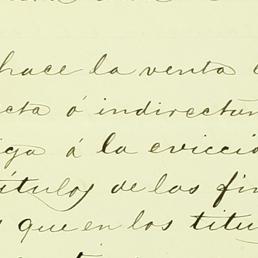 hace la venta
cta ó indirectam
iga á la evicció
títulos de las fin
s que en los titu